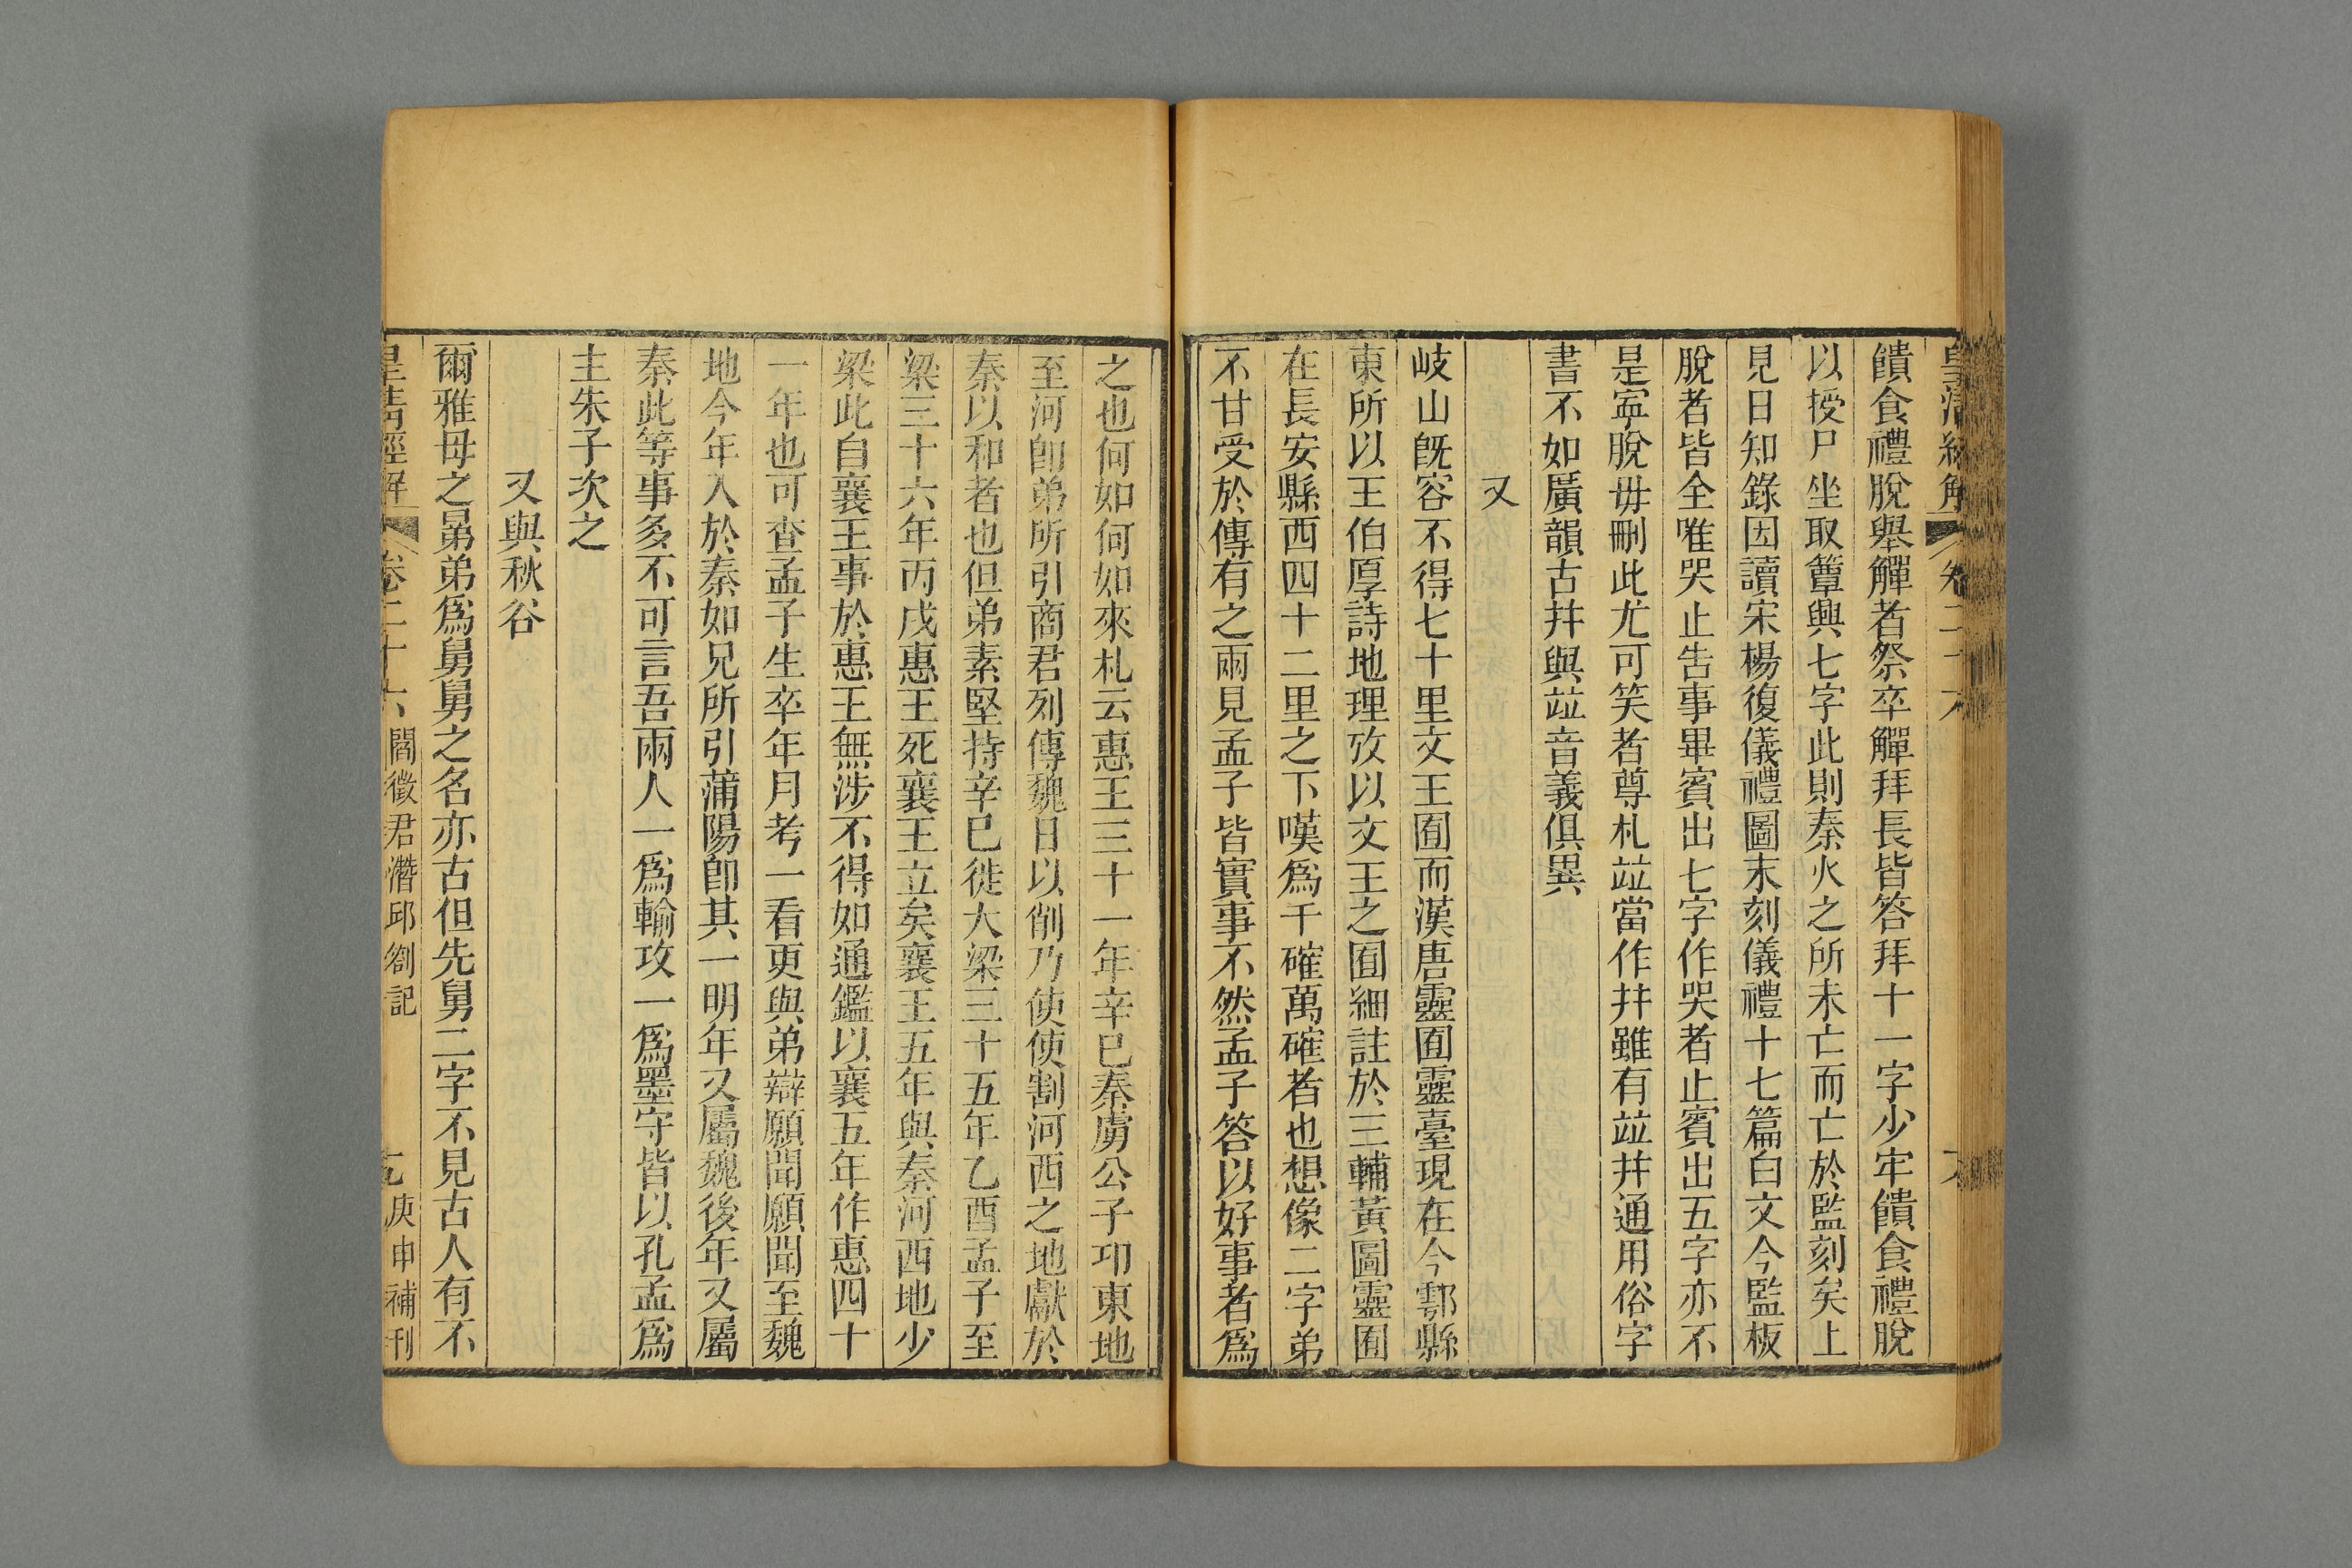 皇清經解 卷二十六
饋食禮脫舉觶者祭卒觶拜長皆答拜十一字少牢饋食禮脫
以授尸坐取簞興七字此則秦火之所未亡而亡於監刻矣上
見日知錄因讀宋楊復儀禮圖末刻儀禮十七篇白文今監板
脫者皆全唯哭止告事畢賓出七字作哭者止賓出五字亦不
是寧脫毋刪此尤可笑者尊札竝當作幷雖有竝幷通用俗字
書不如廣韻古幷與竝音義俱異
又
岐山旣容不得七十里文王囿而漢唐靈囿靈臺現在今鄠縣
東所以王伯厚詩地理攷以文王之囿細註於三輔黃圖靈囿
在長安縣西四十二里之下嘆爲千確萬確者也想像二字弟
不甘受於傳有之兩見孟子皆實事不然孟子答以好事者爲
之也何如何如來札云惠王三十一年辛巳秦虜公子卬東地
至河卽弟所引商君列傳魏日以削乃使使割河西之地獻於
秦以和者也但弟素堅持辛巳徙大梁三十五年乙酉孟子至
梁三十六年丙戌惠王死襄王立矣襄王五年與秦河西地少
梁此自襄王事於惠王無涉不得如通鑑以襄五年作惠四十
一年也可查孟子生卒年月考一看更與弟辯願聞願聞至魏
地今年入於秦如兄所引蒲陽卽其一明年又屬魏後年又屬
秦此等事多不可言吾兩人一爲輸攻一爲墨守皆以孔孟爲
主朱子次之
又與秋谷
爾雅母之晜弟爲舅舅之名亦古但先舅二字不見古人有不
皇淸經解 卷二十六 閻徵君潛邱劄記 庚申補刊